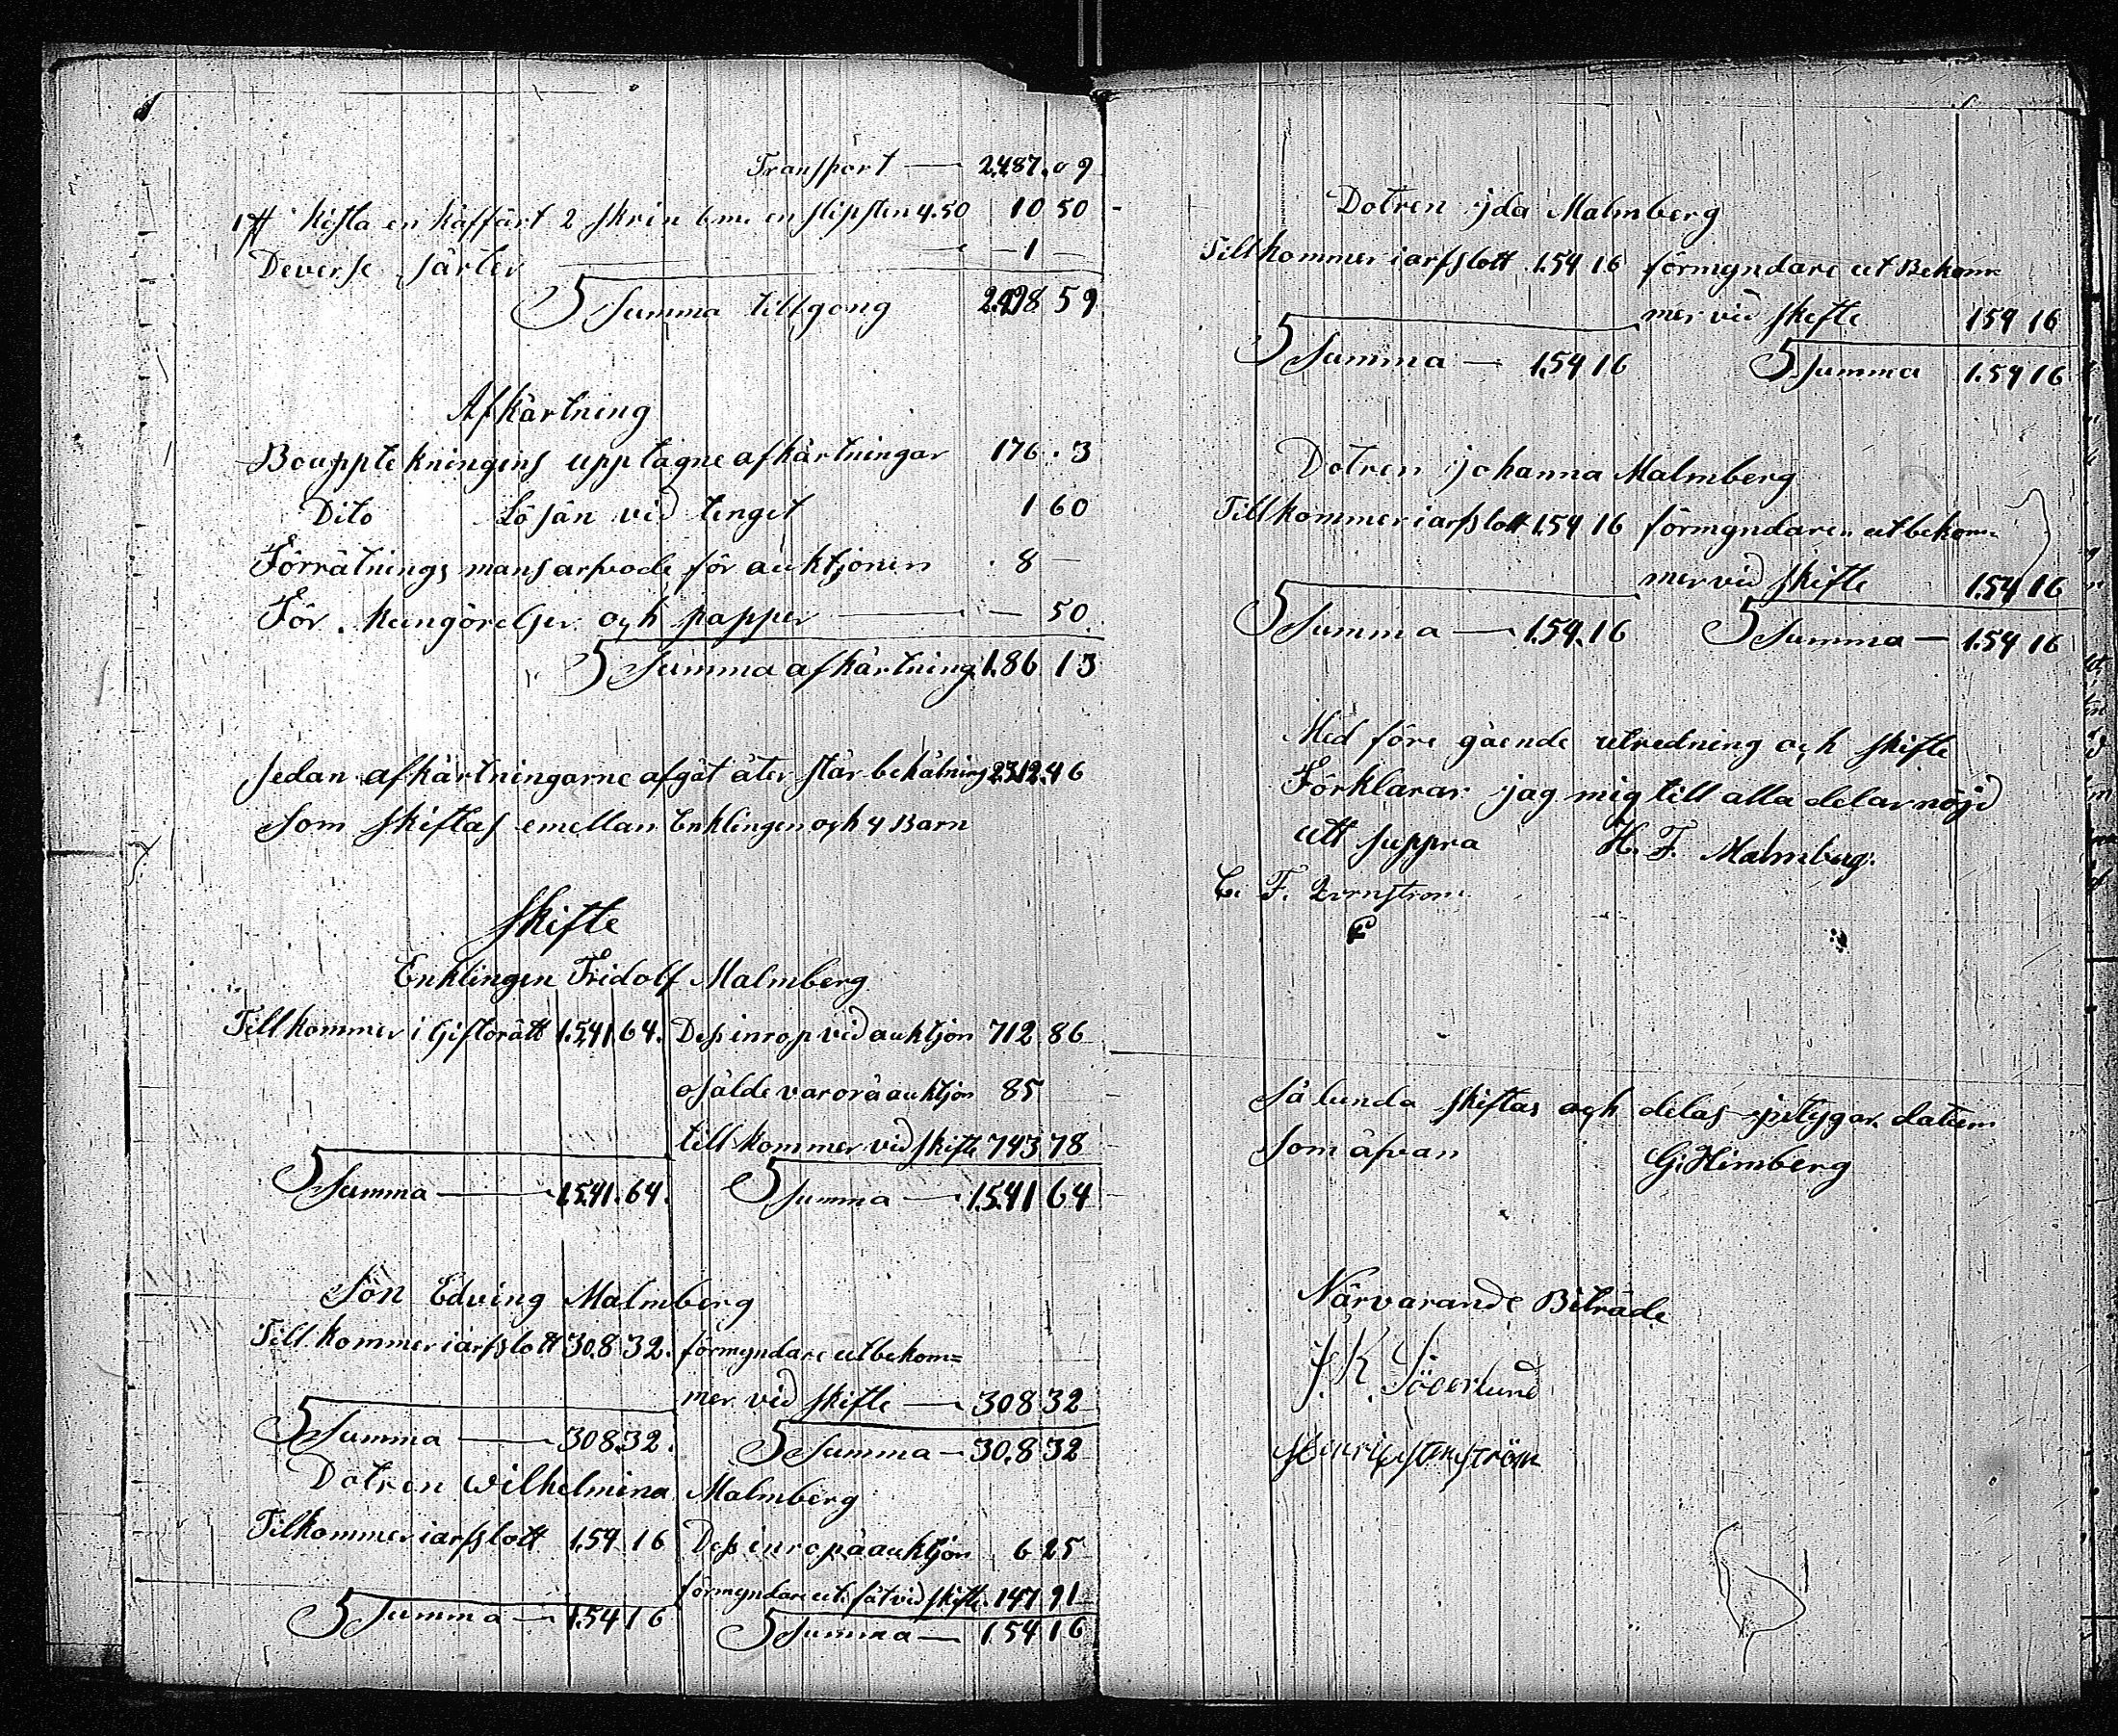 Transport — 2487.09
1 st kista en kaffärt 2 skrin 6 m. en slipsten 4.50 10 50
Deverse sarter — 1 —
Summa tillgong 2498 59
Afkärtning
Bouppte kningens upptagne afkärtningar 176.3
Dito Lösän vid tinget 1 60
Förrätnings mans arfvode för auktjonen 8 —
För kungörelser och papper — 50
Summa afkärtning 186 13
Sedan afkärtningarne afgåt åter står behålning 2312.46
Som skiftas emellan Enklingen och 4 Barn
Skifte
Enklingen Fridolf Malmberg
Till kommer i Giftorätt 1541.64. Dess inrop vid auktjon 712 86
osålde varor å auktjon 85
till kommer vid skifte 743 78
Summa — 1541.64. Summa — 1541 64
Son Edving Malmberg
Till kommer i arfslott 308 32. förmyndare utbekom=
mer vid skifte — 308 32
Summa — 308.32. Summa — 308 32
Dotren Wilhelmina Malmberg
Tilkommer i arfslott 154 16 Dess inrop å auktjon 6 25
förmyndare ut fåt vid skifte 147 91
Summa — 154 16 Summa — 154 16
Dotren ida Malmberg
Till kommer i arfslott 154 16 förmyndare ut Bekom=
mer vid skifte 154 16
Summa — 154 16 Summa 154 16
Dotren johanna Malmberg
Till kommer i arfslott 154 16 förmyndaren utbekom=
mer vid skifte 154 16
Summa — 154.16 Summa — 154 16
Med före gående utredning och skifte
Förklarar jag mig till alla delar nöjd
utt suppra H. F. Malmberg.
F.
Så lunda skiftas och delas jntygar datum
Som åfvan G. Himberg
Närvarande Biträde
J. K. Söderlund
Stenström